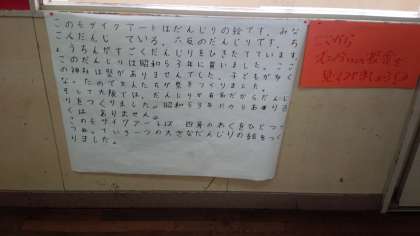 このモザイクアートはだんじりの絵です。みな
こんだんじ ている。六反のだんじりです。ち
ょうちんがすごくだんじりをひきたてています。
このだんじりは昭和53年に買いました。ここ
の神社は祭がありませんでした。子どもがな
な。たのでまんたちが祭をつくりました。
そして大阪では、だんじりが有名だからだんじ
りをつくりました。昭和53年だからあまり古
くはありません。
このモザイクアートは、四角のわくをひとつず
つぬっていき一つの大きなだんじりの絵をつく
りました。
ここから
見つけましょう！